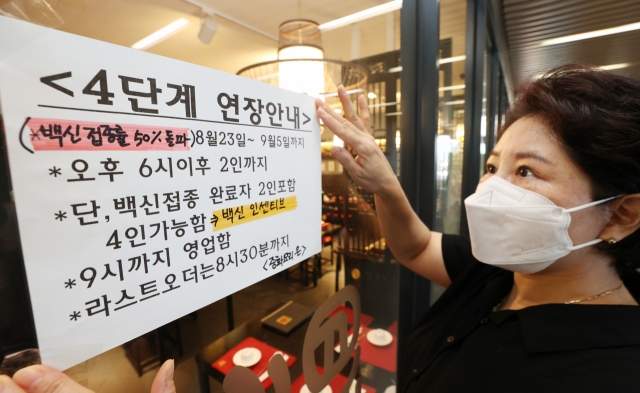 <4단계 연장안내>
(*백신접종률 50% 돌파)8月23일~ 9월5일까지
*오후 6시이후 2인까지
*단,백신접종 완료자 2인포함
4인가능함→백신 인센티브
*9시까지 영업함
*라스트오더는8시30분까지